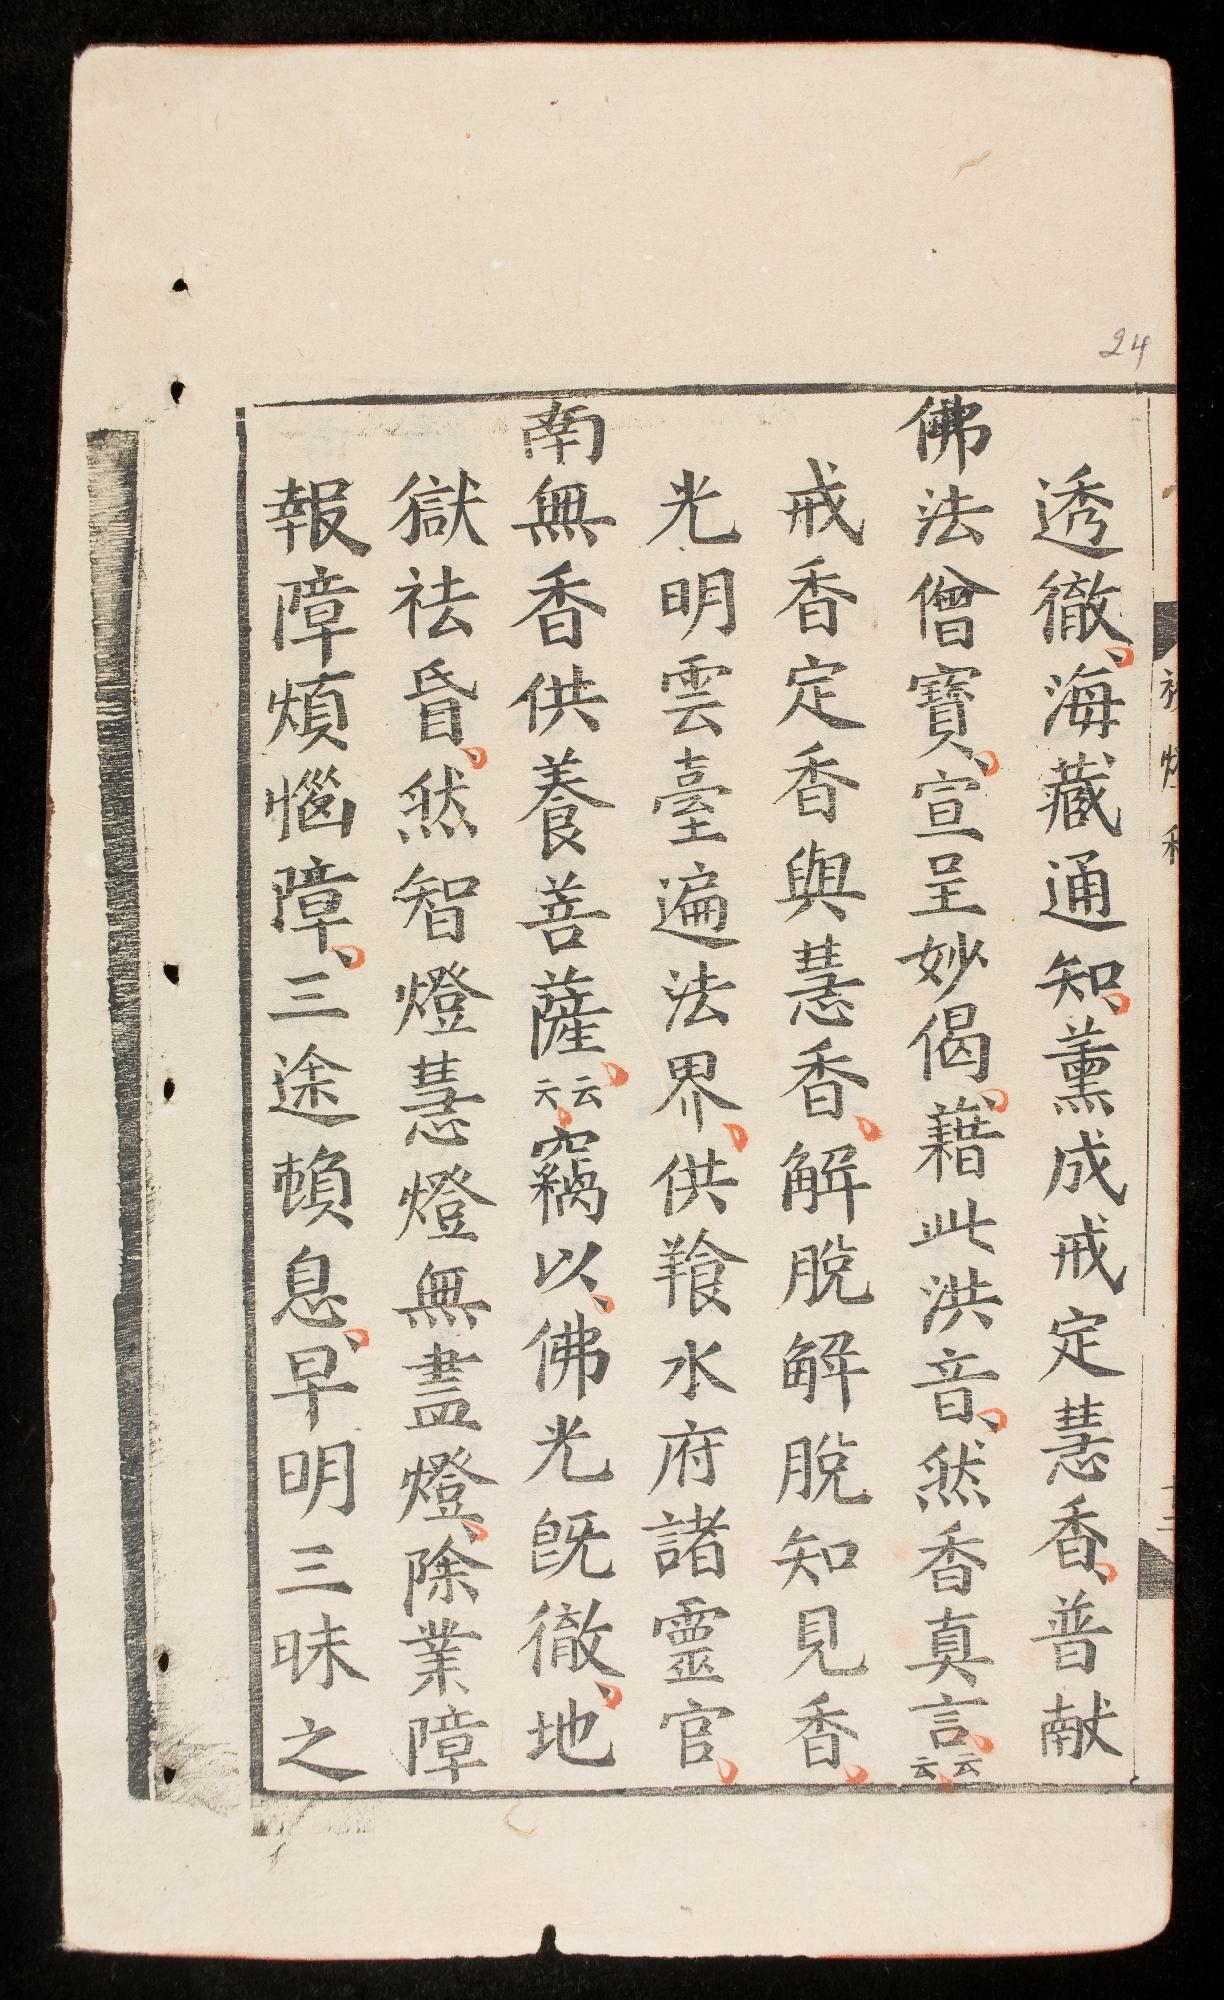 24
透徹海藏通知薰成戒定慧香普献
佛法僧寶宣呈妙偈藉此洪音然香真言云云
戒香定香與慧香解脫解脫知見香
光明雲臺遍法界供飡水府諸靈官
南無香供養菩薩云云竊以佛光旣徹地
獄祛昏然智燈慧燈無盡燈除業障
報障煩惱障三途頓息早明三昧之